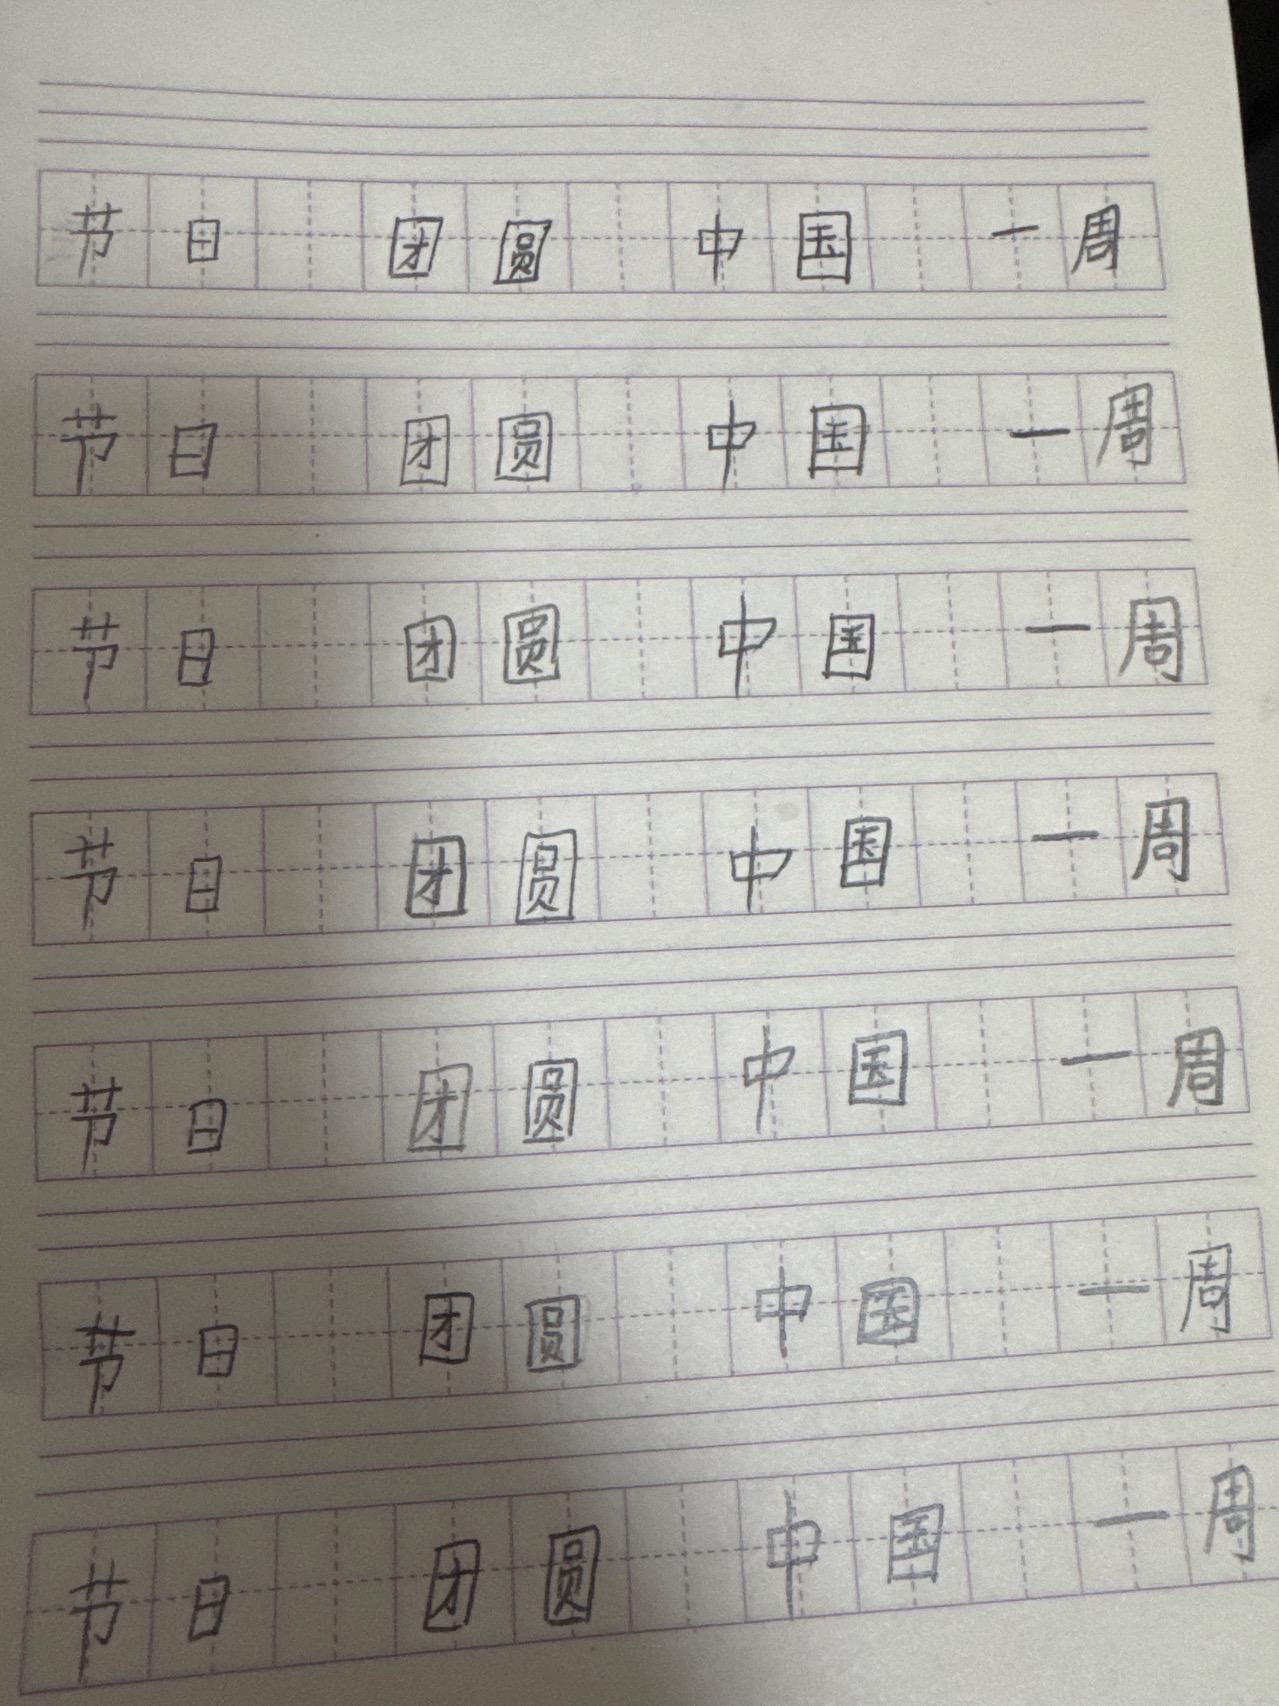 节日 团圆 中国 一周
节日 团圆 中国 一周
节日 团圆 中国 一周
节日 团圆 中国 一周
节日 团圆 中国 一周
节日 团圆 中国 一周
节日 团圆 中国 一周